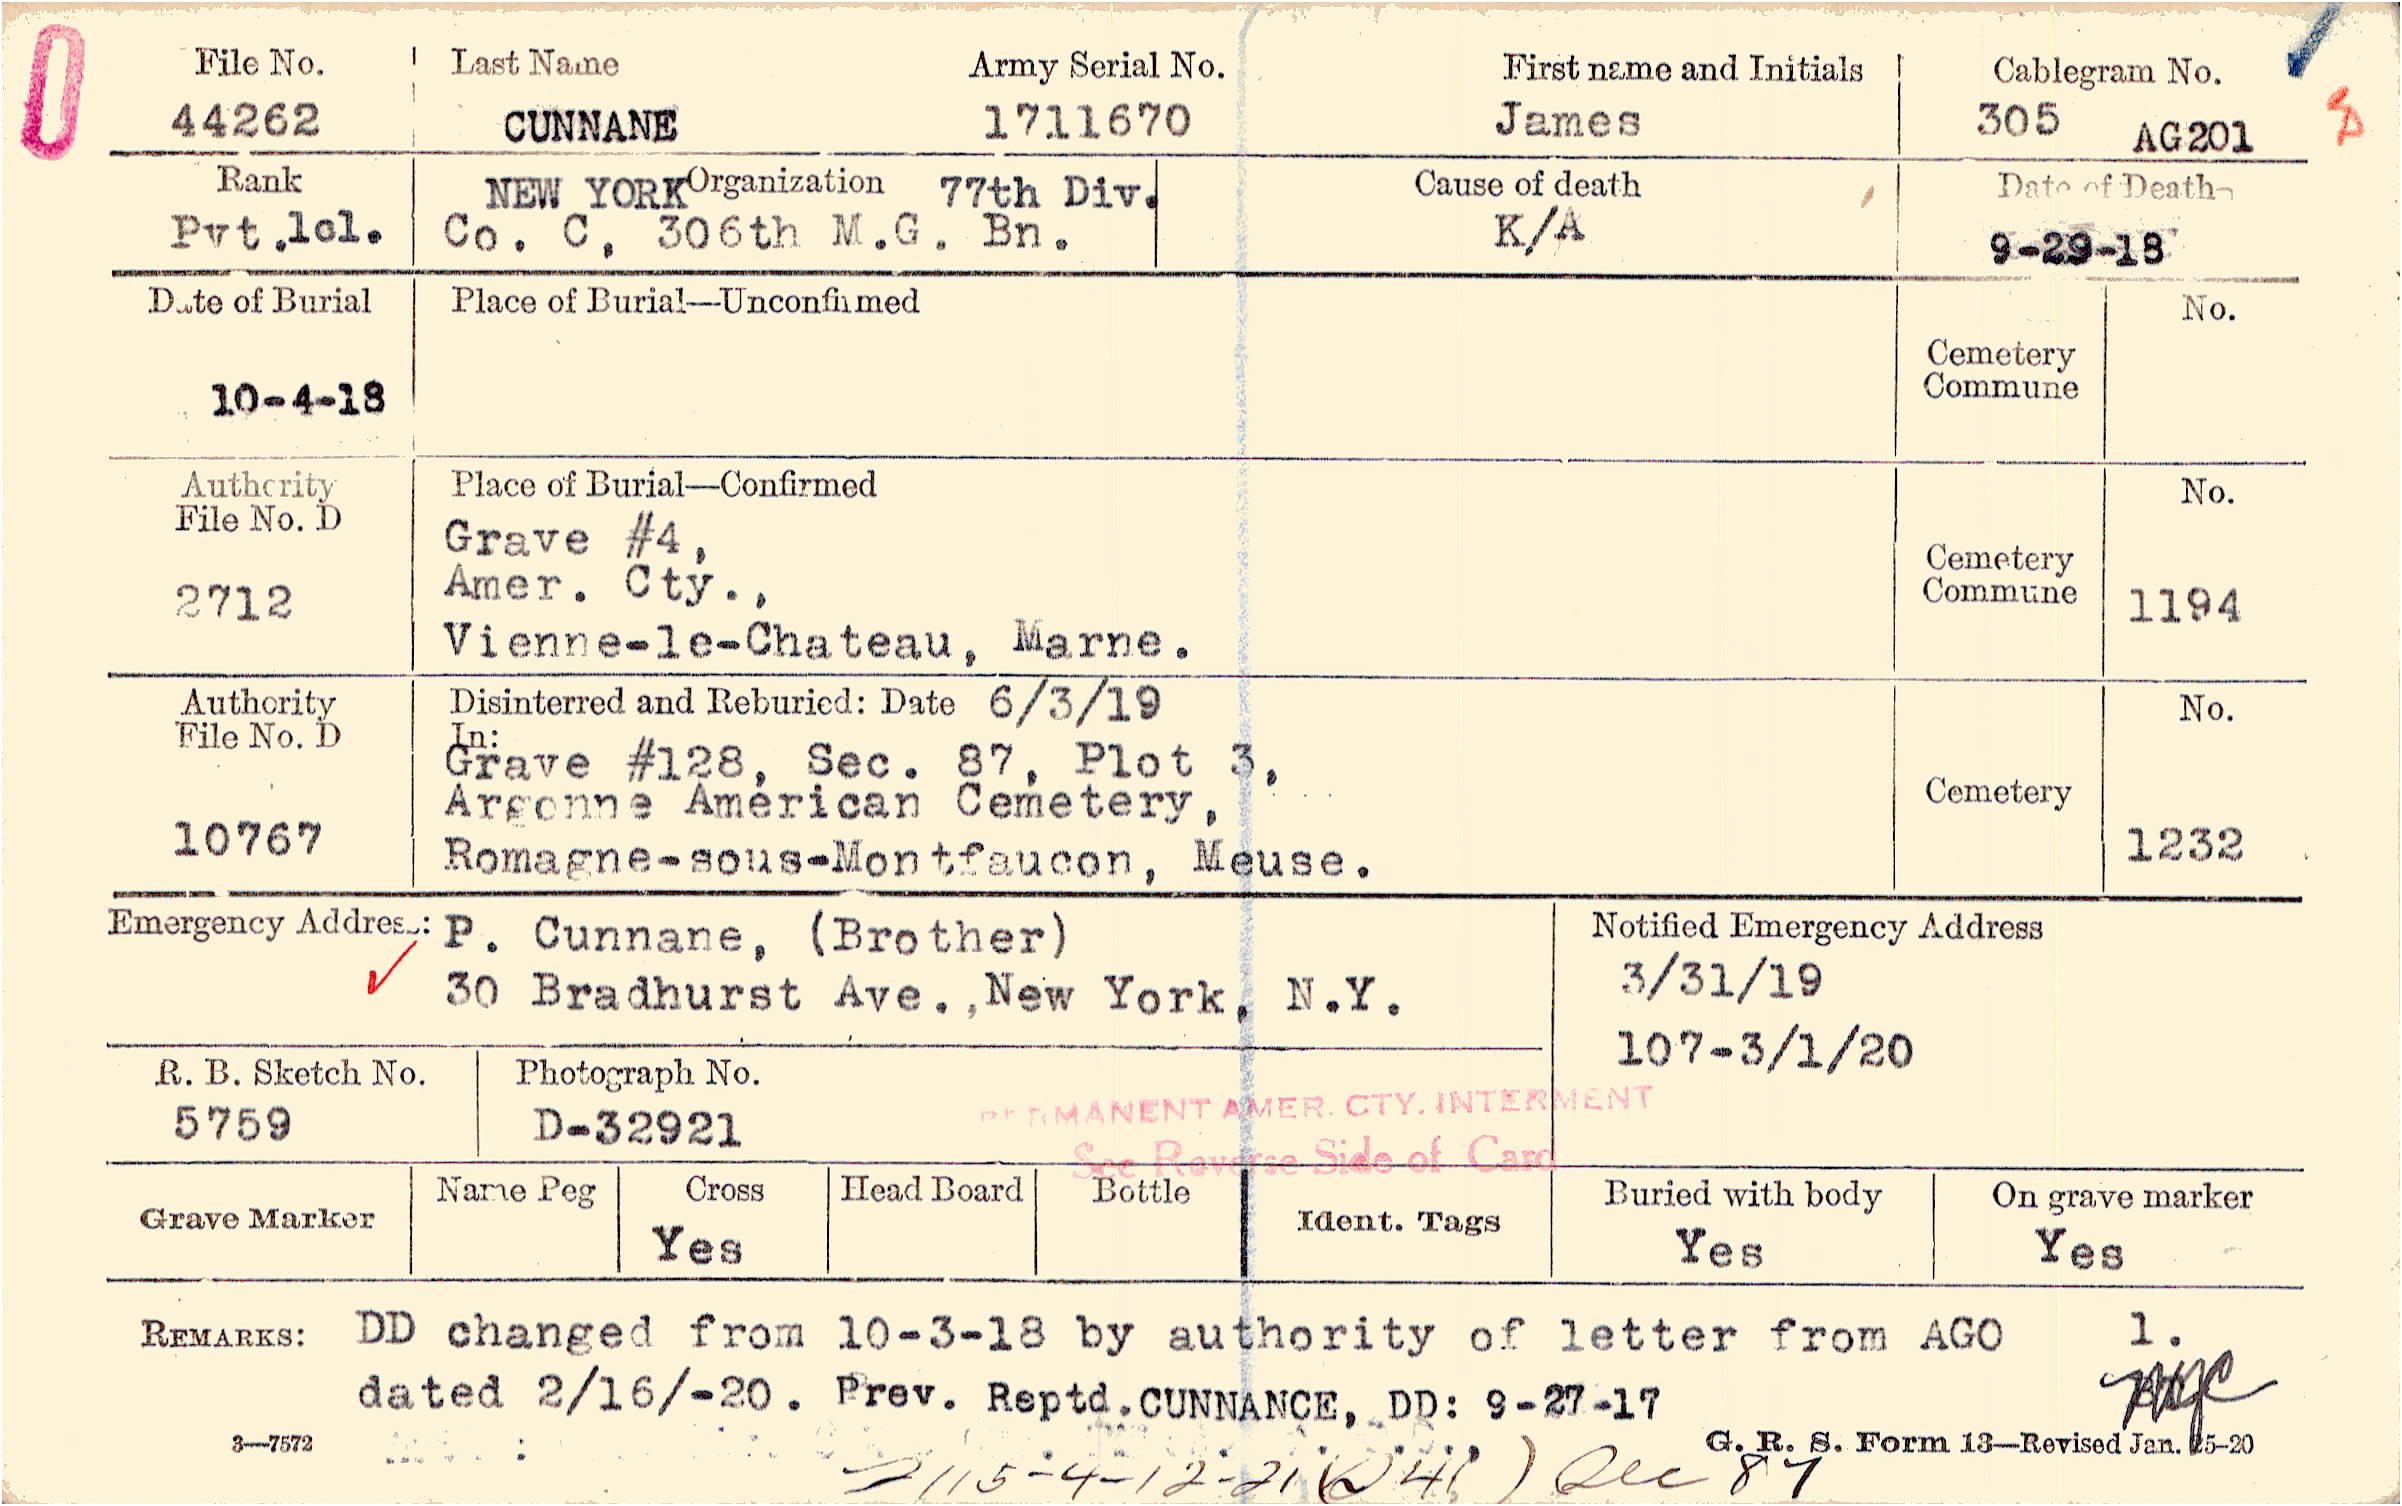 File No. Last Name Army Serial No. First name and Initials Cablegram No.
44262 CUNNANE 1711670 James 305 AG201
Rank NEW YORK Organization 77th Div. Cause of death Date of Death
Pvt.lcl. Co. C, 306th M.G. Bn. K/A 9-29-18
Date of Burial Place of Burial—Unconfirmed No.
Cemetery
Commune
10-4-18
Authority Place of Burial—Confirmed No.
File No. D
Grave #4,
Amer. Cty., Cemetery
2712 Commune 1194
Vienne-le-Chateau, Marne.
Authority Disinterred and Reburied: Date 6/3/19 No.
File No. D In:
Grave #128, Sec. 87, Plot 3,
Argonne American Cemetery, Cemetery
10767 Romagne-sous-Montfaucon, Meuse. 1232
Emergency Address: P. Cunnane, (Brother) Notified Emergency Address
30 Bradhurst Ave., New York, N.Y. 3/31/19
107-3/1/20
R. B. Sketch No. Photograph No.
5759 D-32921
PERMANENT AMER. CTY. INTERMENT
See Reverse Side of Card
Grave Marker Name Peg Cross Head Board Bottle Ident. Tags Buried with body On grave marker
Yes Yes Yes
REMARKS: DD changed from 10-3-18 by authority of letter from AGO 1.
dated 2/16/-20. Prev. Reptd. CUNNANCE, DD: 9-27-17
3—7572 G. R. S. Form 13—Revised Jan. 15-20
115-4-12-21 Sec 87